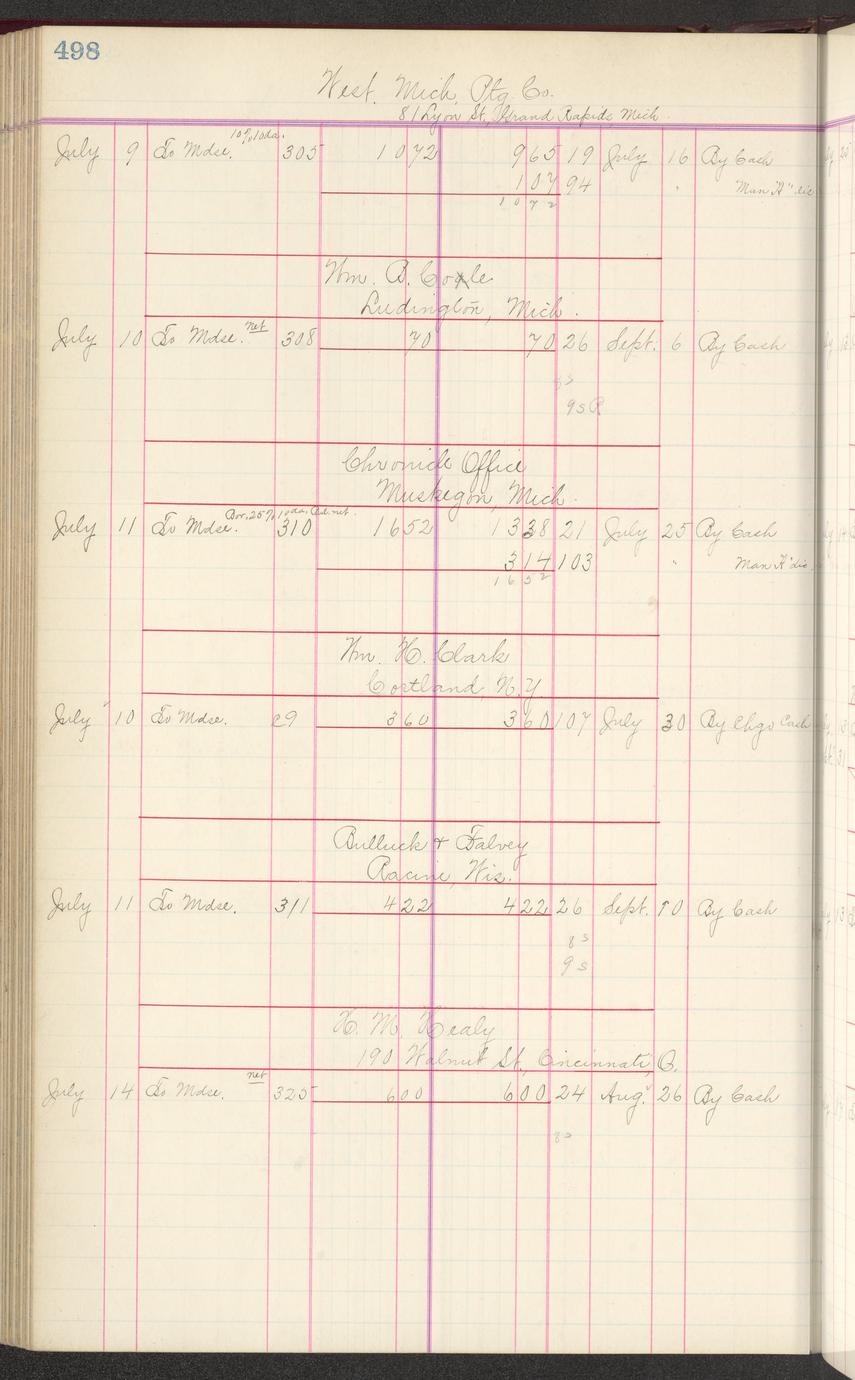 498
West. Mich. Ptg. Co.
81 Lyon St., Grand Rapids, Mich.
July 9 To Mdse. 10% 10 da. 305 10 72 9 65 19 July 16 By Cash
1 07 94 " Man "H" dis
10 72
Wm. B. Cole
Ludington, Mich.
July 10 To Mdse. net 308 70 70 26 Sept. 6 By Cash
8s
9s R
Chronicle Office
Muskegon, Mich.
July 11 To Mdse. 25% 10 da. net. 310 16 52 13 38 21 July 25 By Cash
3 14 103 " Man "H" dis.
16 52
Wm. H. Clark
Cortland, N.Y.
July 10 To Mdse. c9 3 60 3 60 107 July 30 By Chgo Cash
Bulluck & Falvey
Racine, Wis.
July 11 To Mdse. 311 4 22 4 22 26 Sept. 10 By Cash
8s
9s
H. M. Healy
190 Walnut St., Cincinnati, O.
July 14 To Mdse. net 325 6 00 6 00 24 Aug. 26 By Cash
8s